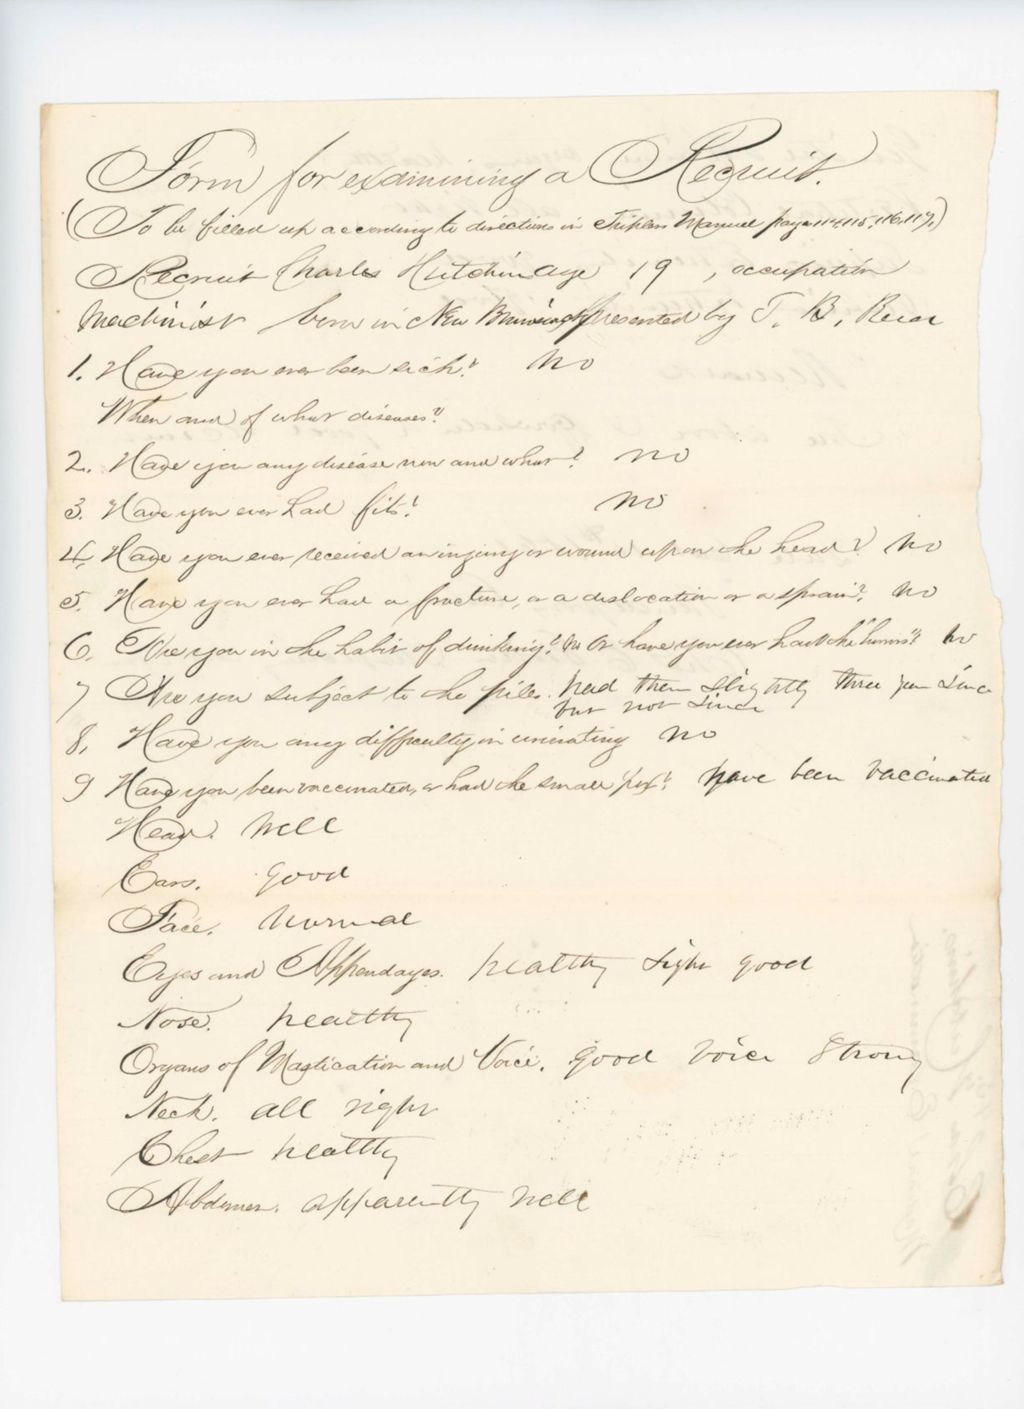 Form for examining a Recruit.
(To be filled up according to directions in Triplers Manual page 114, 115, 116, 117.)
Recruit Charles Hutchin age 19, occupation
Machinist born in New Brunswick presented by T. B.
1. Have you ever been sick? No
When and of what diseases?
2. Have you any disease now and what? No
3. Have you ever had fits? No
4. Have you ever received an injury or wound upon the head? No
5. Have you ever had a fracture, or a dislocation or a sprain? No
6. Are you in the habit of drinking? No Or have you ever had the "horrors"? No
7 Are you subject to the piles. had them slightly three years since
but not since
8. Have you any difficulty in urinating No
9 Have you been vaccinated, or had the small pox? have been vaccinated
Head. well
Ears. good
Face. normal
Eyes and Appendages. healthy sight good
Nose. healthy
Organs of Mastication and Voice. good voice strong
Neck. all right
Chest healthy
Abdomen. apparently well